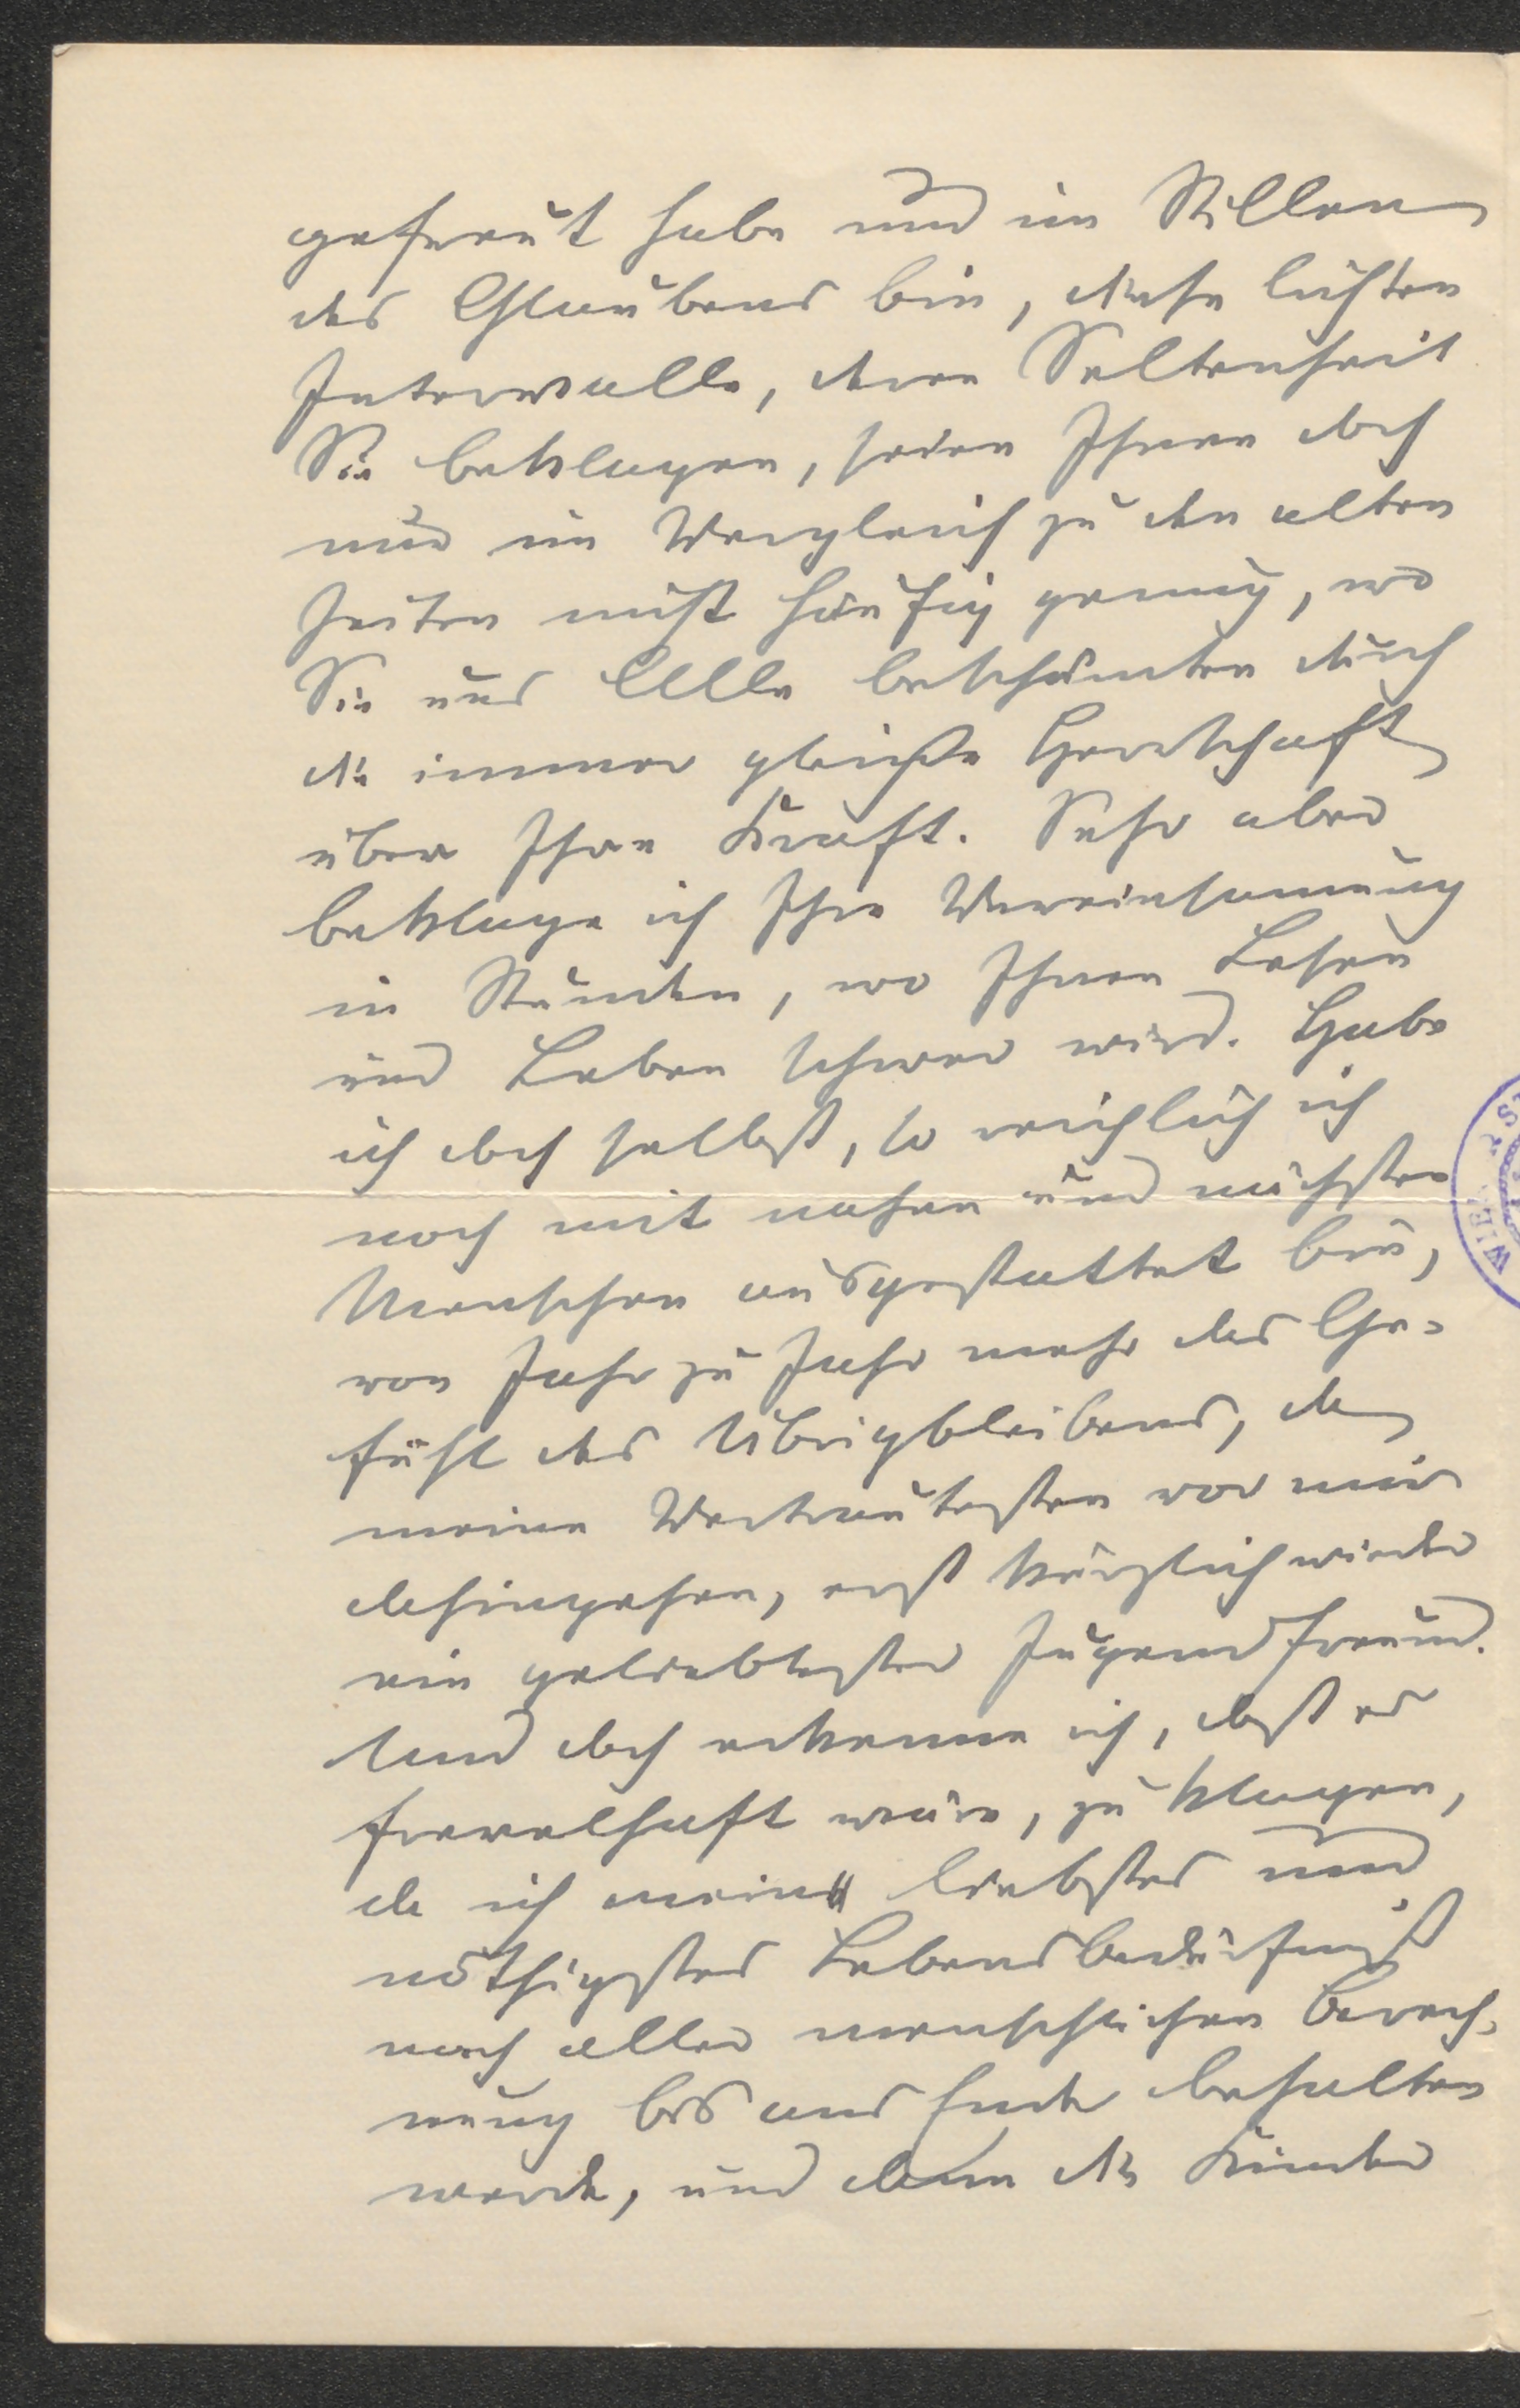 gefreut habe und im Stillen
des Glaubens bin, diese lichten
Intervalle, deren Seltenheit
Sie beklagen, seien Ihnen doch
nur im Vergleich zu den alten
Zeiten nicht häufig genug, wo
Sie uns Alle beschämten durch
die immer gleiche Herrschaft
über Ihre Kraft. Sehr aber
beklage ich Ihre Vereinsamung
in Stunden, wo Ihnen Lesen
und Leben schwer wird. Habe
ich doch selbst, so reichlich ich
noch mit nahen und nächsten
Menschen ausgestattet bin,
von Jahr zu Jahr mehr das Ge-
fühl des Übrigbleibens, da
meine Vertrautesten vor mir
dahingehen, erst kürzlich wieder
ein geliebtester Jugendfreund.
Und doch erkenne ich, daß es
frevelhaft wäre, zu klagen,
da ich mein liebstes und
nöthigstes Lebensbedürfniß
nach aller menschlichen Berech-
nung bis ans Ende behalten
werde, und dann die Kinder
WIEN ST